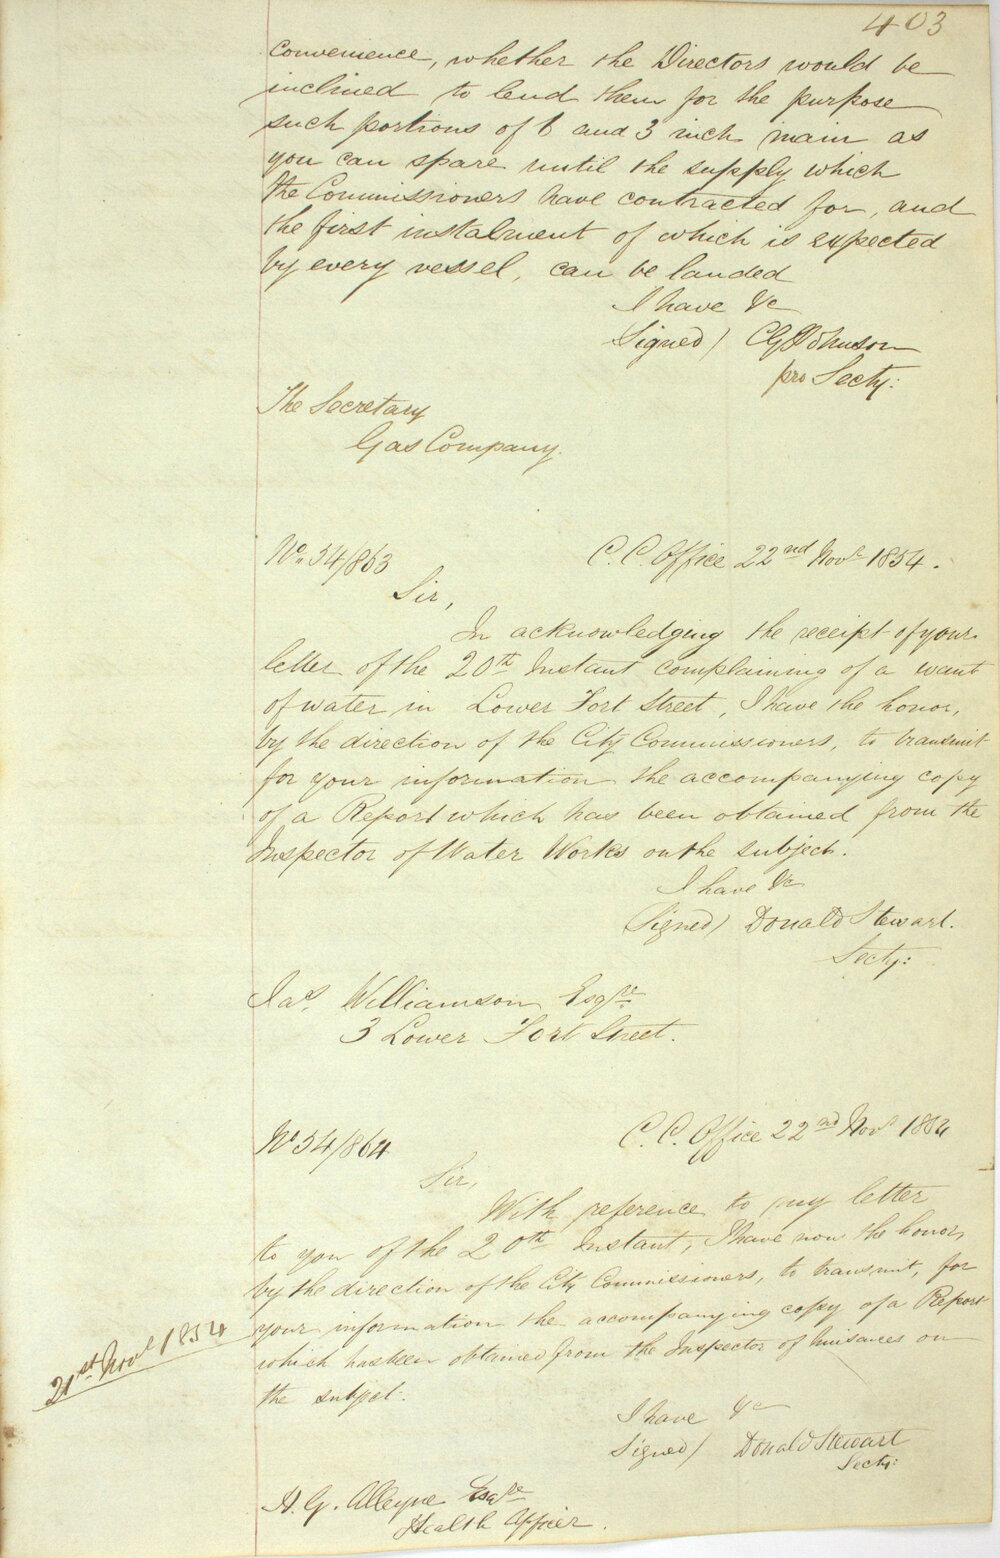 403
convenience, whether the Directors would be
inclined to lend them for the purpose
such portions of 6 and 3 inch main as
you can spare until the supply which
the Commissioners have contracted for, and
the first instalment of which is expected
by every vessel, can be landed
I have &c
Signed / C G Johnson
pro Secty:
The Secretary
Gas Company.
No. 54/863 C. C. Office 22nd Novr 1854.
Sir,
In acknowledging the receipt of your
letter of the 20th Instant complaining of a want
of water in Lower Fort Street, I have the honor,
by the direction of the City Commissioners, to transmit
for your information the accompanying copy
of a Report which has been obtained from the
Inspector of Water Works on the subject.
I have &c
Signed / Donald Stewart.
Secty:
Jas. Williamson Esqre
3 Lower Fort Street.
No 54/864 C. C. Office 22nd Novr 1854
Sir,
With reference to my letter
to you of the 20th Instant, I have now the honor,
by the direction of the City Commissioners, to transmit, for
your information the accompanying copy of a Report
21st Novr 1854
which has been obtained from the Inspector of Nuisances on
the subject.
I have &c
Signed / Donald Stewart
Secty:
H. G. Alleyne Esqre
Health Officer.